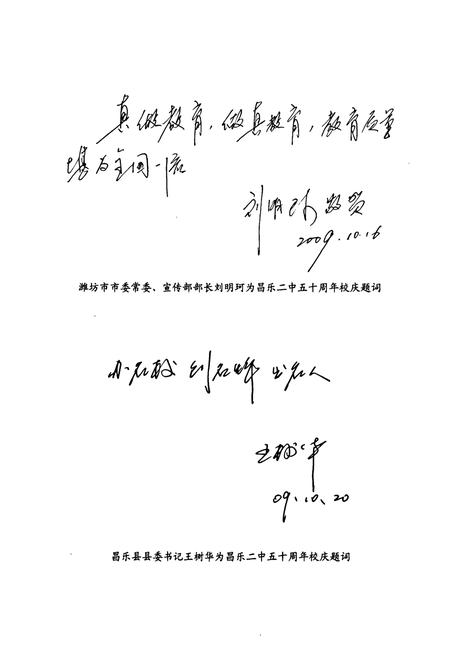 真做教育,做真教育,教育质量
堪为全国一流
刘明珂 敬贺
2009.10.16
潍坊市市委常委、宣传部部长刘明珂为昌乐二中五十周年校庆题词
办名校 创名牌 出名人
王树华
09.10.20
昌乐县县委书记王树华为昌乐二中五十周年校庆题词